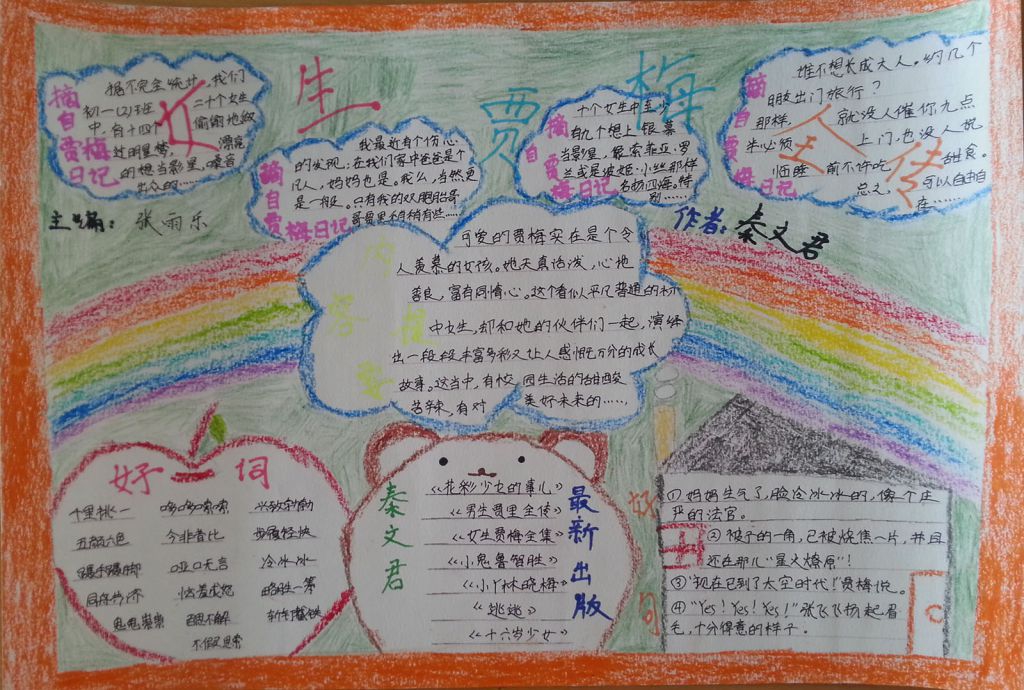 女生贾梅全传
摘自贾梅日记
据不完全统计,我们
初一(2)班 二十个女生
中,有十四个 偷偷地做
过明星梦。 漂亮
的想当影星,嗓音
出众的……
摘自贾梅日记
我最近有个伤心
的发现:在我们家中爸爸是个
凡人,妈妈也是。我么,当然更
是一般。只有我的双胞胎哥
哥贾里稍稍有些……
摘自贾梅日记
十个女生中至少
有九个想上银幕
当影星,最索菲亚·罗
兰或是波姬·小丝那样
名扬四海。特
别……
摘自贾梅日记
谁不想长成大人。约几个
朋友出门旅行?
那样, 就没人催你九点
半必须 上门,也没人说
临睡 前不许吃 甜食。
总之, 可以自由自
在……
主编:张雨乐
作者:秦文君
内容提要
可爱的贾梅实在是个令
人羡慕的女孩。她天真活泼,心地
善良,富有同情心。这个看似平凡普通的初
中女生,却和她的伙伴们一起,演绎
出一段段丰富多彩又让人感慨万分的成长
故事。这当中,有校园生活的甜酸
苦辣,有对美好未来的……
好词
千里挑一 哆哆嗦嗦 兴致勃勃
五颜六色 今非昔比 步履轻快
蹑手蹑脚 哑口无言 冷冰冰
同舟共济 恼羞成怒 略胜一筹
鬼鬼祟祟 迷惑不解 斩钉截铁
不假思索
秦文君
最新出版
《花彩少女的事儿》
《男生贾里全传》
《女生贾梅全集》
《小鬼鲁智胜》
《小丫林晓梅》
《逃逃》
《十六岁少女》
好句
①妈妈生气了,脸冷冰冰的,像一个庄
严的法官。
②被子的一角,已被烧焦一片,并且
还在那儿“星火燎原”!
③“现在已到了太空时代!贾梅说。
④“Yes!Yes!Yes!”张飞飞扬起眉
毛,十分得意的样子。